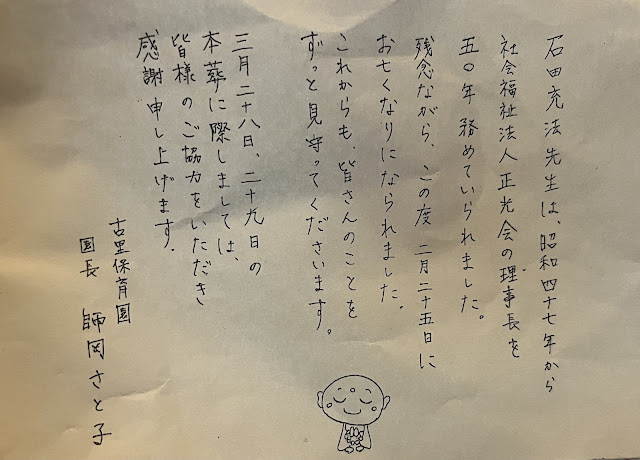 石田充法先生は、昭和四十七年から
社会福祉法人正光会の理事長を
五〇年務めていられました。
残念ながら、この度 二月二十五日に
お亡くなりになられました。
これからも、皆さんのことを
ずっと見守ってくださいます。
三月二十八日、二十九日の
本葬に際しましては、
皆様のご協力をいただき
感謝申し上げます。
古里保育園
園長 師岡さと子